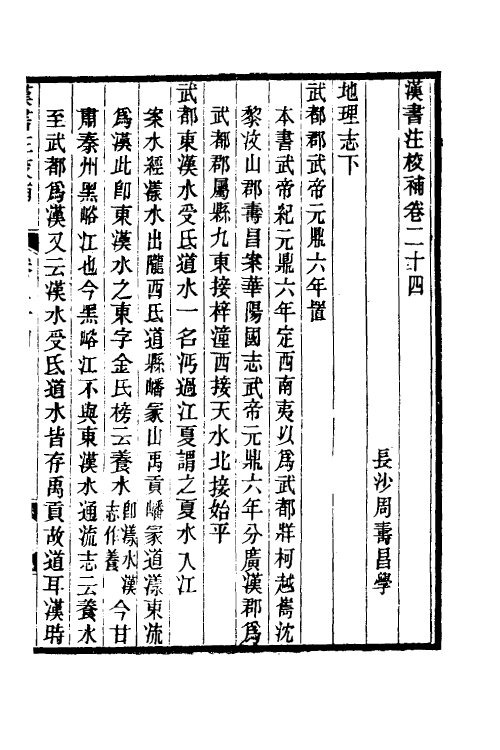 漢書注校補卷二十四
長沙周壽昌學
地理志下
武都郡武帝元鼎六年置
本書武帝紀元鼎六年定西南夷以爲武都牂柯越巂沈
黎汶山郡壽昌案華陽國志武帝元鼎六年分廣漢郡爲
武都郡屬縣九東接梓潼西接天水北接始平
武都東漢水受氐道水一名沔過江夏謂之夏水入江
案水經漾水出隴西氐道縣嶓冢山禹貢嶓冢道漾東流
爲漢此卽東漢水之東字金氏榜云養水卽漾水漢志作養今甘
肅秦州黑峪江也今黑峪江不與東漢水通流志云養水
至武都爲漢又云漢水受氐道水皆存禹貢故道耳漢時